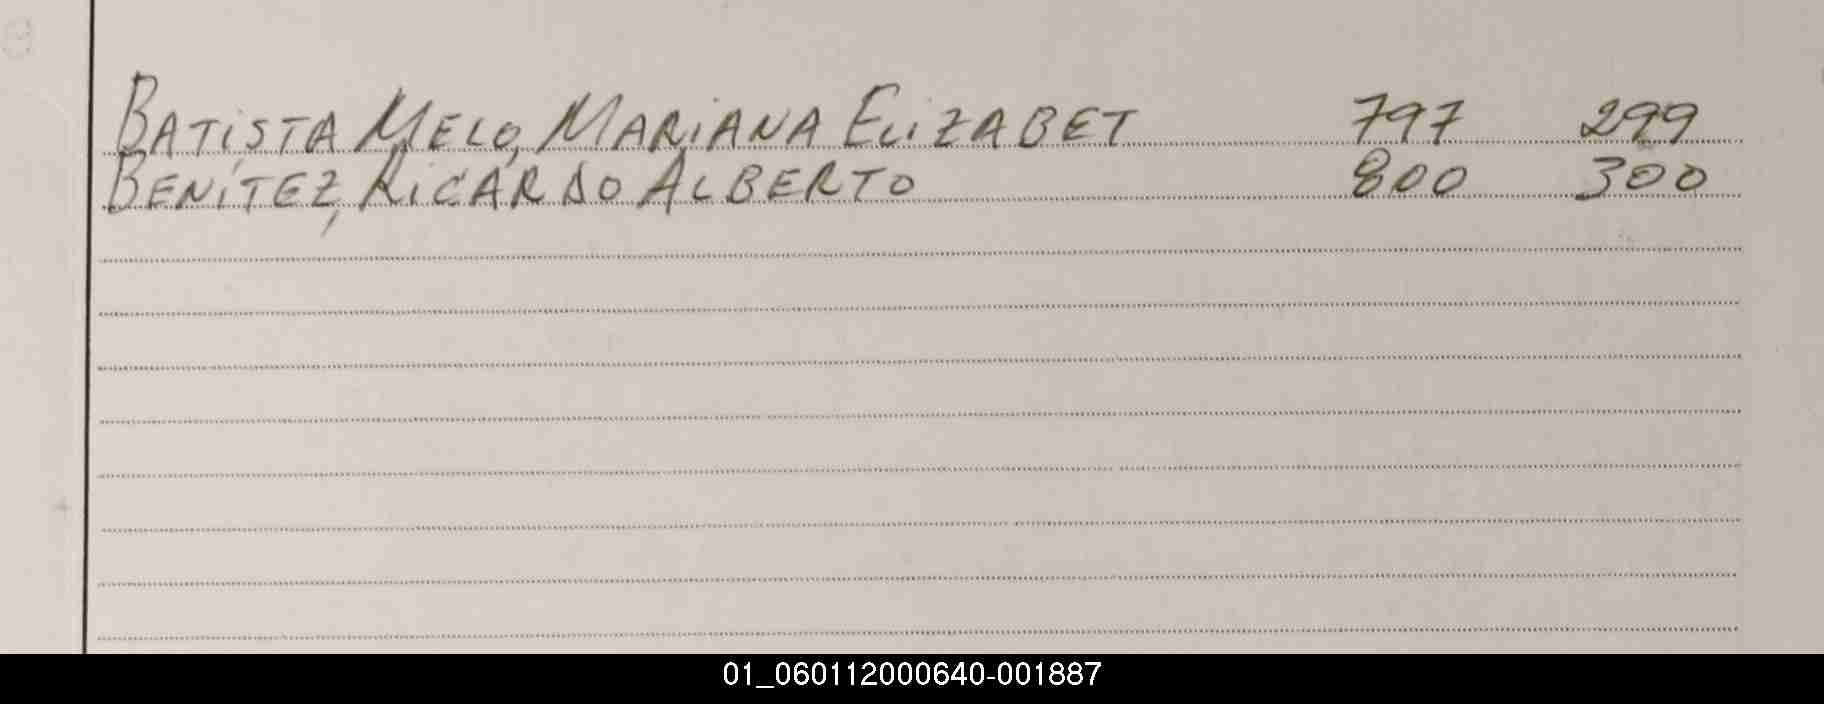 BATISTA MELO, MARIANA ELIZABET 797 299
BENÍTEZ, RICARDO ALBERTO 800 300
01_060112000640-001887